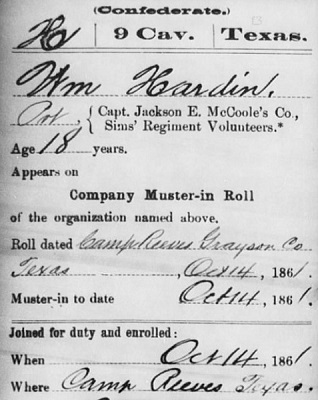 (Confederate.)
H 9 Cav. Texas.
Wm Hardin.
Pvt, { Capt. Jackson E. McCoole's Co.,
Sims' Regiment Volunteers.*
Age 18 years.
Appears on
Company Muster-in Roll
of the organization named above.
Roll dated Camp Reeves Grayson Co
Texas, Oct 14, 1861.
Muster-in to date Oct 14, 1861.
Joined for duty and enrolled:
When Oct 14, 1861.
Where Camp Reeves Texas.